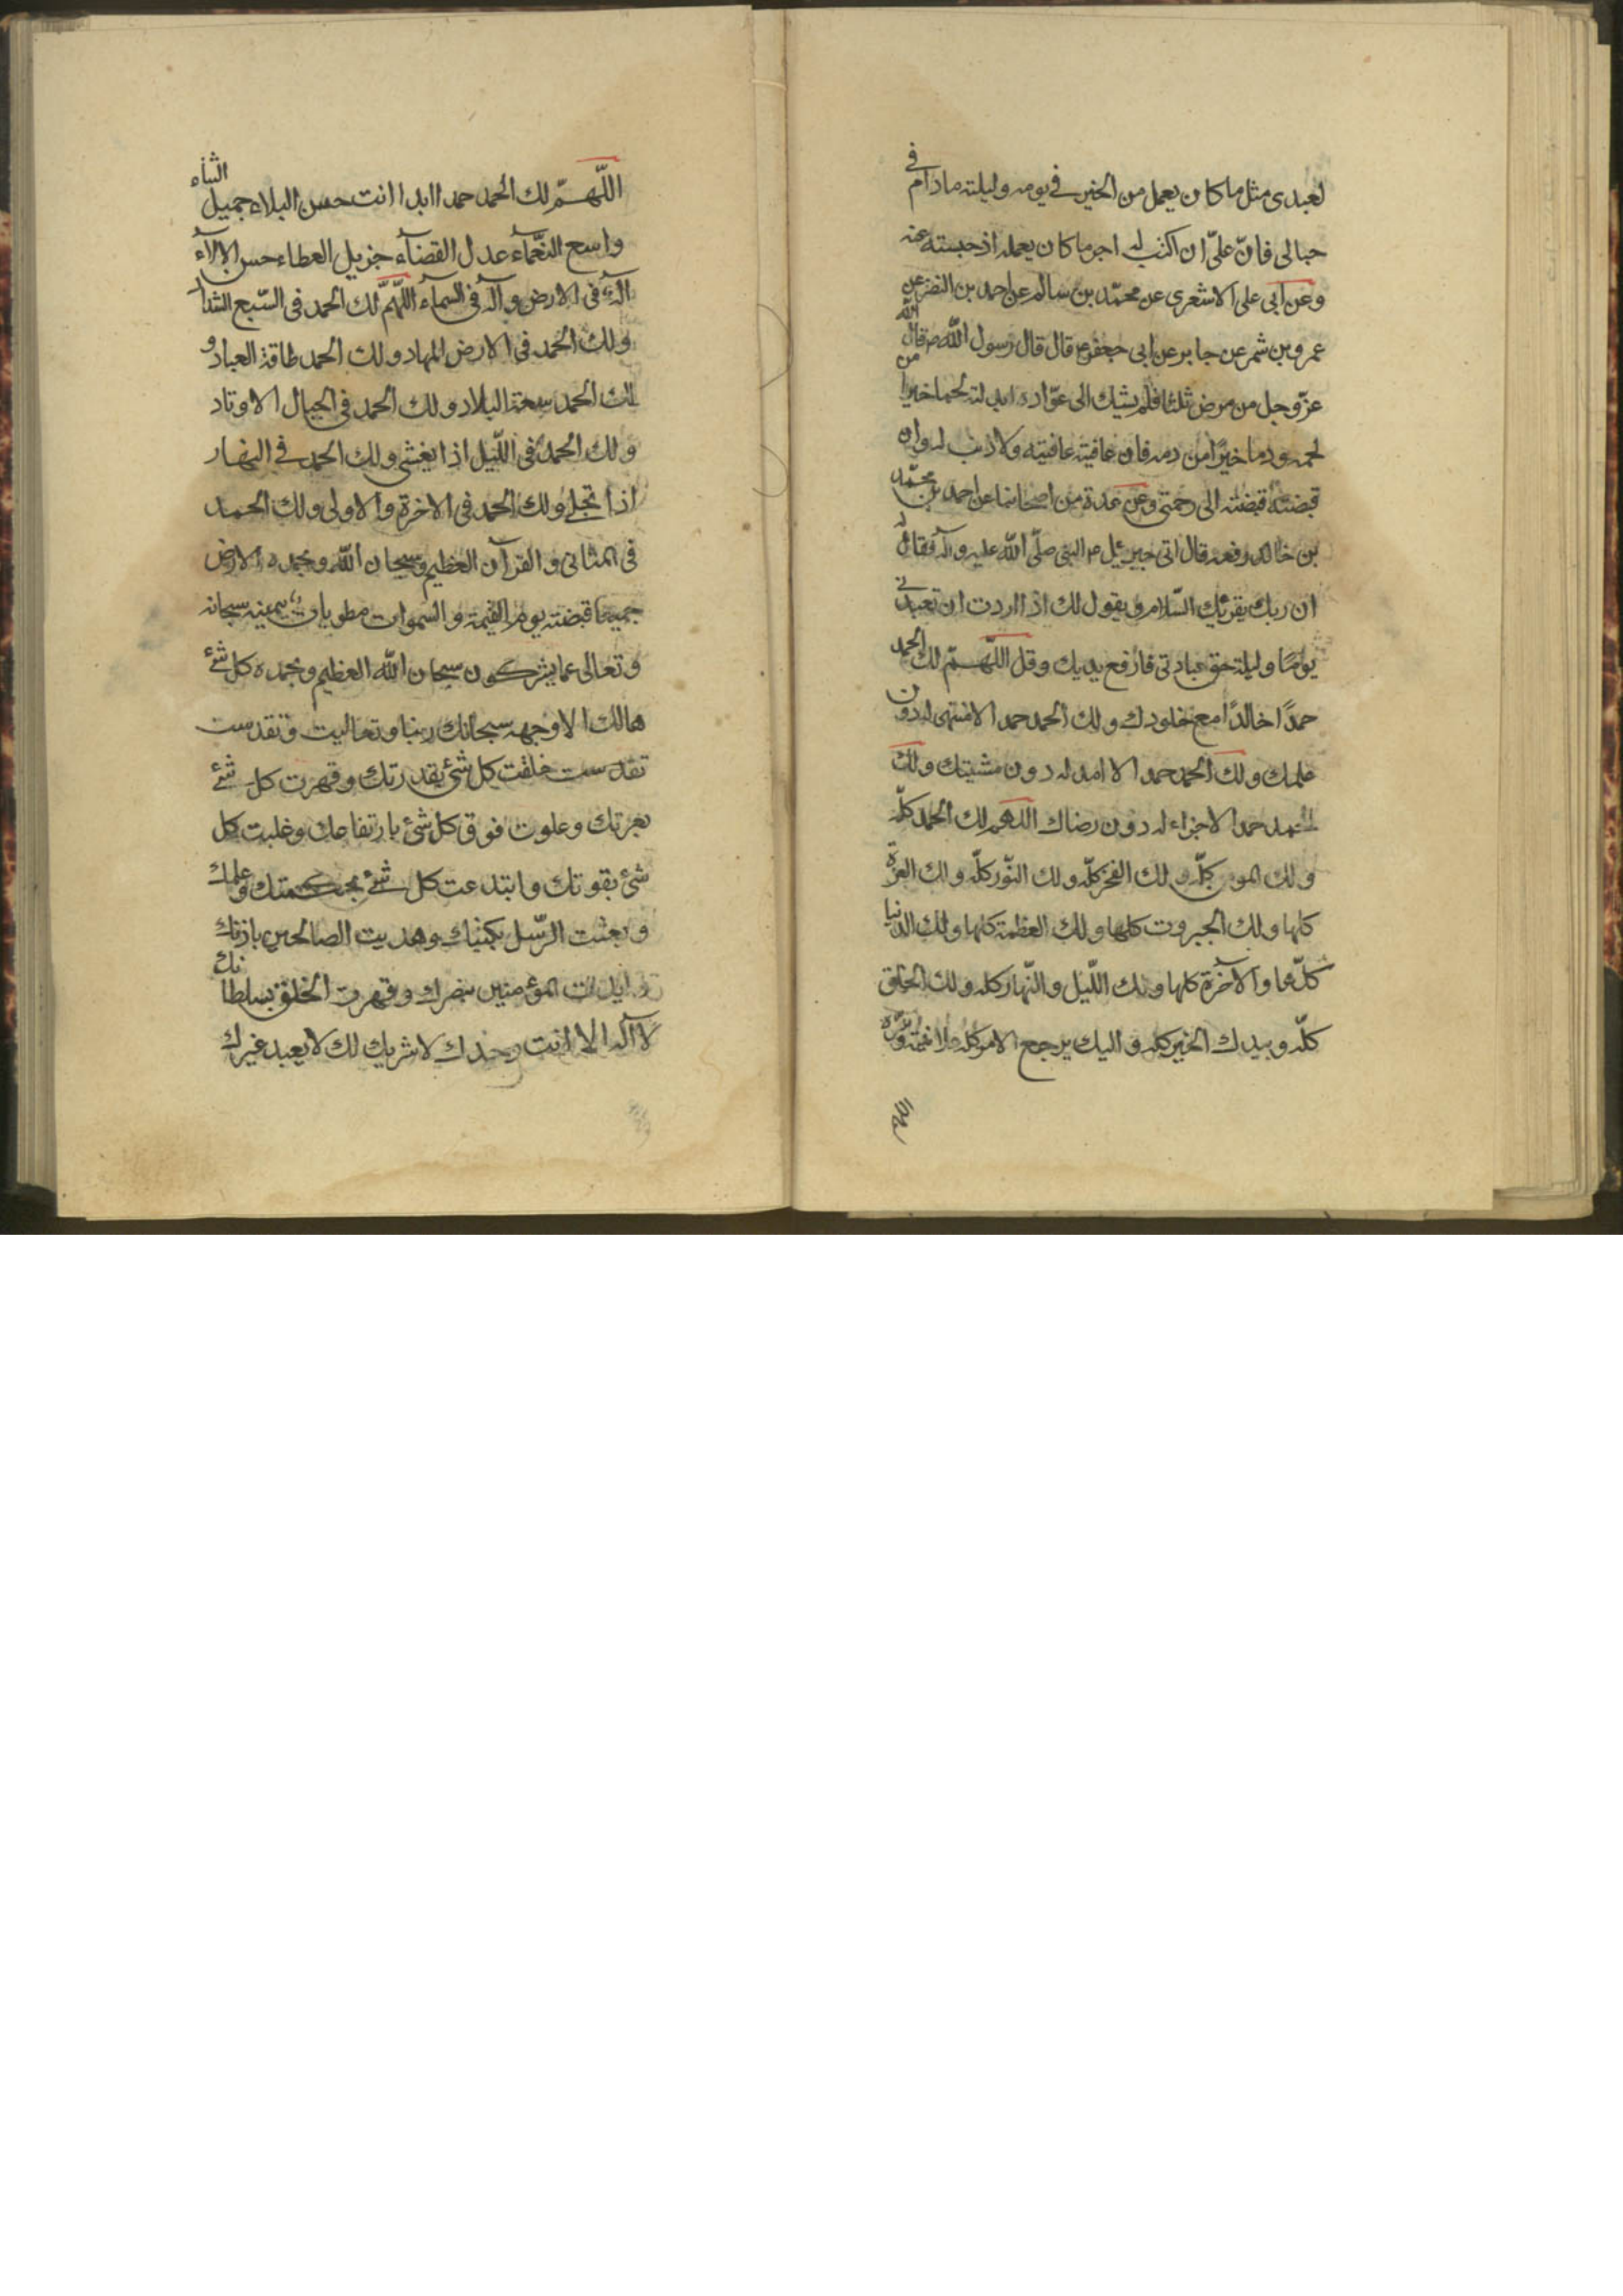 لعبدى مثل ما كان يعمل من الخير فى يومه وليلته مادام فى
حبالى فانّ علىّ ان اكتب له اجر ما كان يعمله اذ حبسته عنه
وعن ابى على الاشعرى عن محمّد بن سالم عن احمد بن النضر عن
عمرو بن شمر عن جابر عن ابى جعفر ع قال قال رسول الله ص قال الله
عزّ وجل من مرض ثلثا فلم يشك الى عوّاده ابدلته لحما خيرا من
لحمه ودما خيرًا من دمه فان عافيته عافيته ولا ذنب له وان
قبضته قبضته الى رحمتى وعن عدة من اصحابنا عن احمد بن محمّد
بن خالد رفعه قال اتى جبرئيل ع النبى صلّى الله عليه وآله فقال له
ان ربك يقرئك السّلام ويقول لك اذا اردت ان تعبدنى
يومًا وليلة حق عبادتى فارفع يديك وقل اللّهمّ لك الحمد
حمدًا خالدًا مع خلودك ولك الحمد حمدا لا منتهى له دون
علمك ولك الحمد حمدا لا امد له دون مشيتك ولك
الحمد حمدا لا جزاء له دون رضاك اللهم لك الحمد كلّه
ولك المن كلّه ولك الفخر كلّه ولك النّور كلّه ولك العزة
كلها ولك الجبروت كلها ولك العظمة كلها ولك الدنيا
كلّها والآخرة كلها ولك اللّيل والنّهار كله ولك الخلق
كلّه وبيدك الخير كله واليك يرجع الامر كله علانيته وسرّه
اللهم
اللّهمّ لك الحمد حمدا ابدا انت حسن البلاء جميل الثناء
واسع النّعمآء عدل القضآء جزيل العطاء حسن الالآء
اله فى الارض وآله فى السمآء اللّهمّ لك الحمد فى السّبع الشداد
ولك الحمد فى الارض المهاد ولك الحمد طاقة العباد و
لك الحمد سعة البلاد ولك الحمد فى الجبال الاوتاد
ولك الحمد فى اللّيل اذا يغشى ولك الحمد فى النهار
اذا تجلى ولك الحمد فى الاخرة والاولى ولك الحمد
فى المثانى والقرآن العظيم وسبحان الله وبحمده والارض
جميعا قبضته يوم القيمة والسّموات مطويات بيمينه سبحانه
وتعالى عما يشركون سبحان الله العظيم وبحمده كل شئ
هالك الا وجهه سبحانك ربنا وتعاليت وتقدست
تقدست خلقت كل شئ بقدرتك وقهرت كل شئ
بعزتك وعلوت فوق كل شئ بارتفاعك وغلبت كل
شئ بقوتك وابتدعت كل شئ بحكمتك وعلمك
وبعثت الرّسل بكتبك وهديت الصالحين باذنك
و ايدت المؤمنين بنصرك وقهرت الخلق بسلطانك
لا آله الا انت وحدك لا شريك لك لا يعبد غيرك